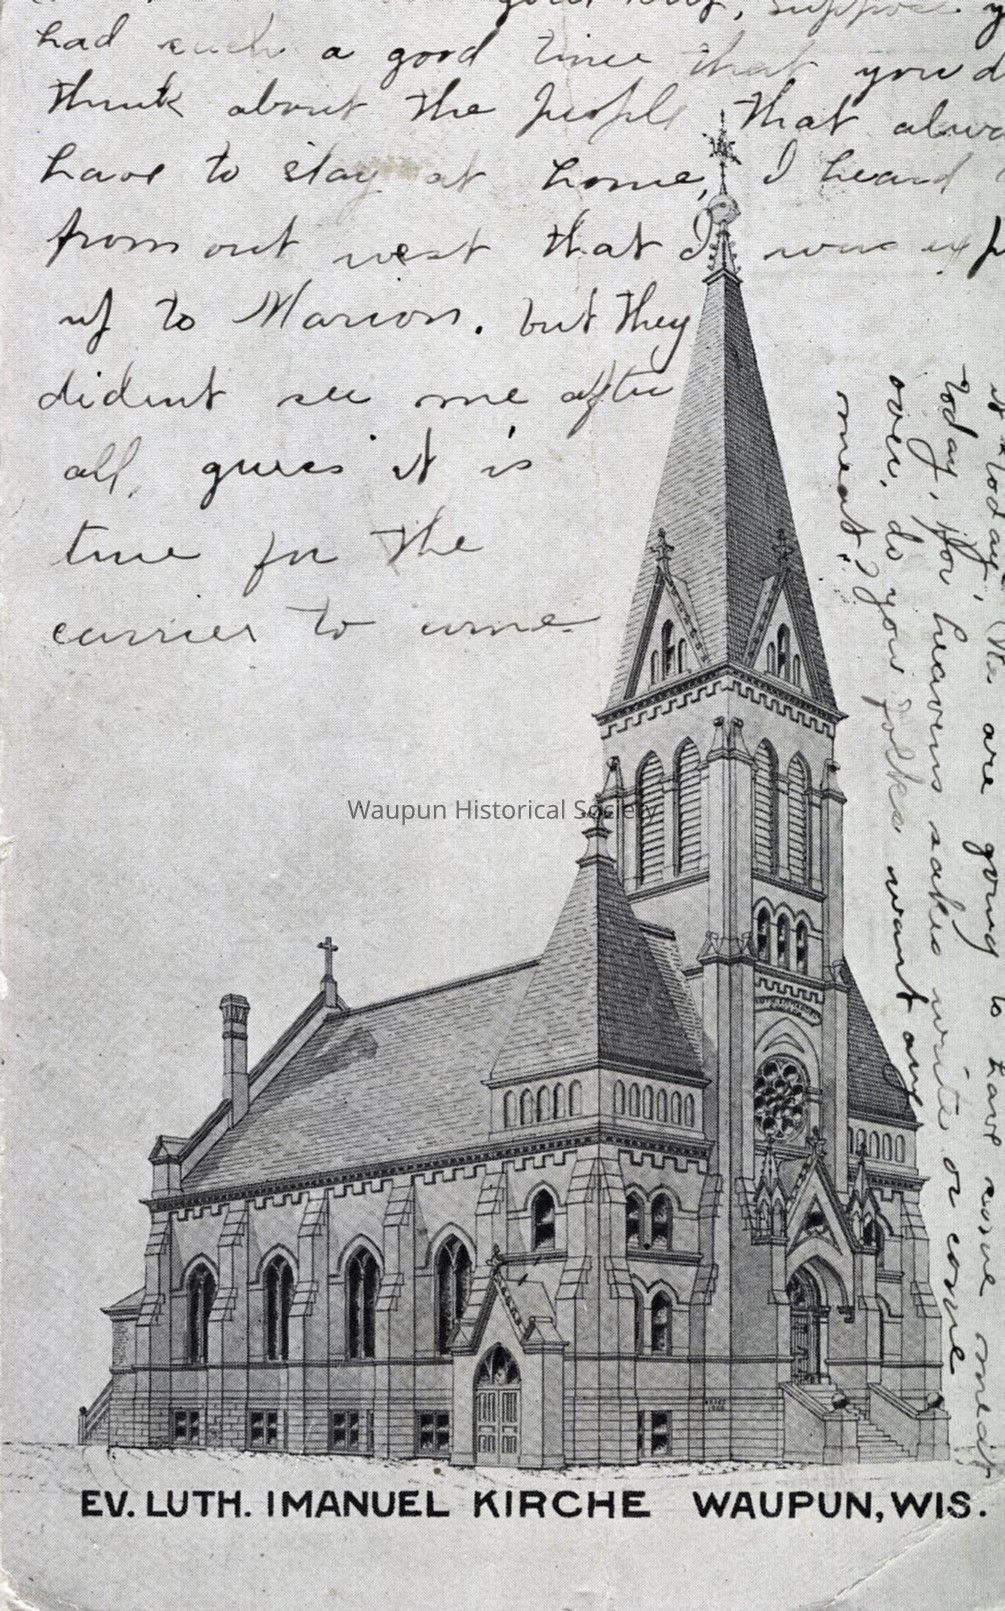 your way, suppose y
had such a good time that you d
think about the people that alwa
have to stay at home, I heard
from out west that I was exp
up to Marion. but they
dident see me after
all, guess it is
time for the
carrier to come.
today, We are going to have some meat
today, for heavens sakes write or come
over, do you folks want any
meat?
Waupun Historical Society
EV. LUTH. IMANUEL KIRCHE WAUPUN, WIS.